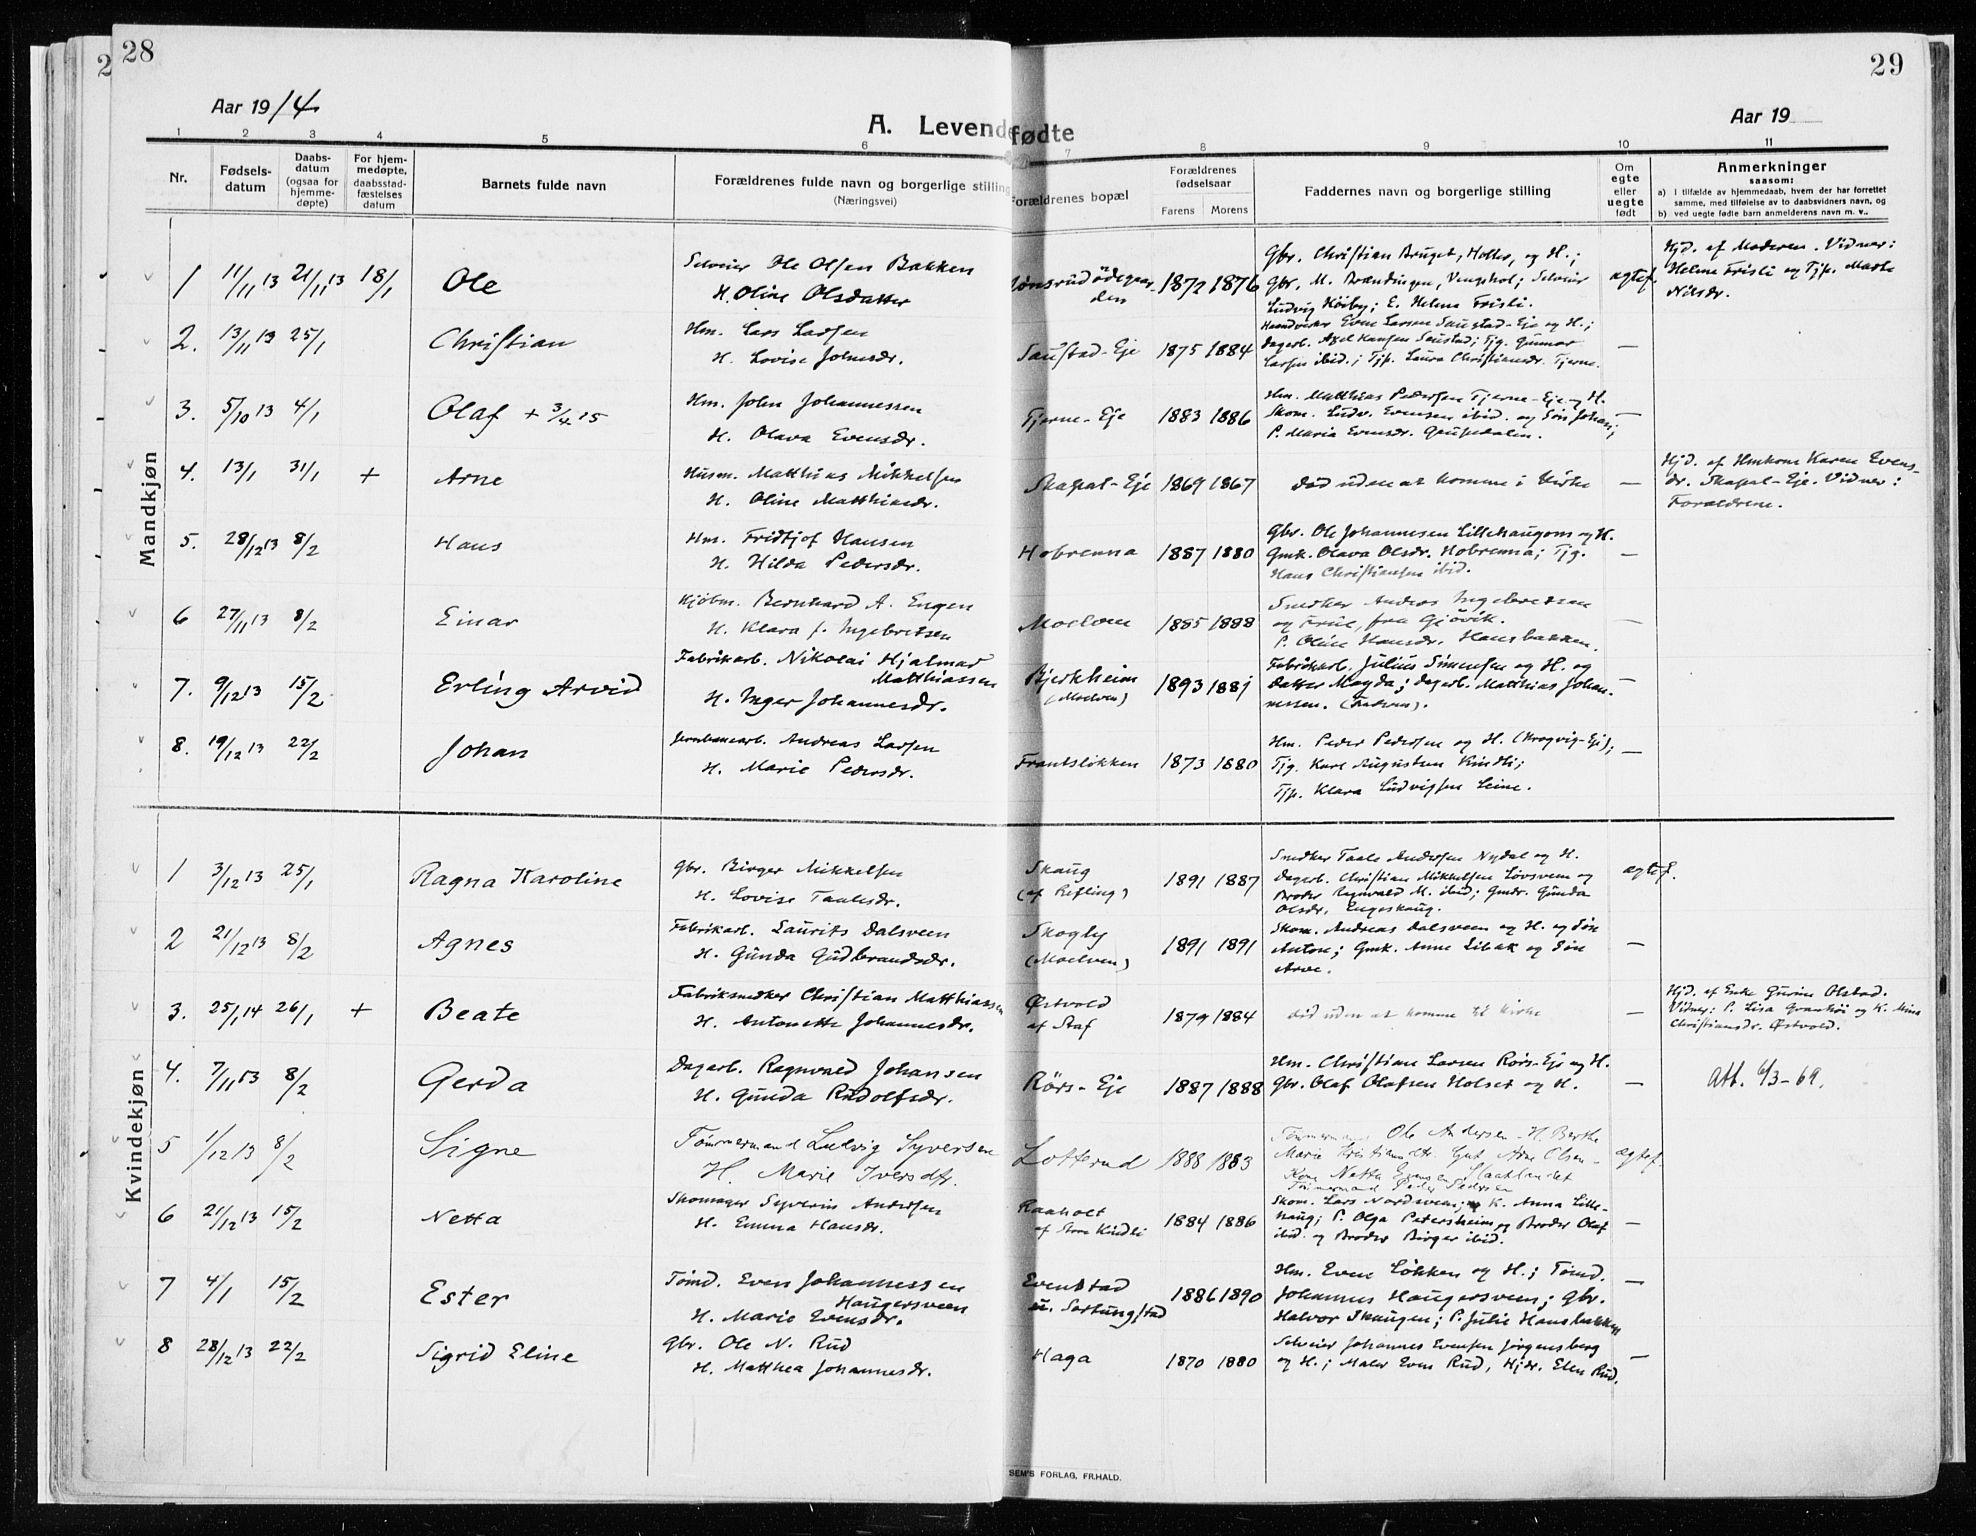 28
29
Aar 1914
Aar 19
A. Levendefødte
1 2 3 4 5 6 7 8 9 10 11
Nr.
Fødsels-datum
Daabs-datum (ogsaa for hjemme-døpte)
For hjem-medøpte, daabsstad-fæstelses datum
Barnets fulde navn
Forældrenes fulde navn og borgerlige stilling
(Næringsvei)
Forældrenes bopæl
Forældrenes fødselsaar
Farens Morens
Faddernes navn og borgerlige stilling
Om egte eller uegte født
Anmerkninger
saasom:
a) I tilfælde av hjemmedaab, hvem der har forrettet
samme, med tilføielse av to daabsvidners navn, og
b) ved uegte fødte barn anmelderens navn m. v..
Mandkjøn
1 11/11 13 21/11 13 18/1 Ole
Selveier Ole Olsen Bakken
H. Oline Olsdatter
1872 1876
Gbr. Christian Bruget, Holter, og H.;
Gbr. M. Brændingen, Vengshol; Selveier
Ludvig Køiby; E. Helene Frisli.
egtef.
Hjd. af Moderen. Vidner:
Helene Frisli og Tjp. Marthe
Nilsdr.
2. 13/11 13 25/1 Christian
Hm. Lars Larsen
H. Lovise Johnsdr.
Saustad-Eje 1875 1884
Haandverker Even Larsen Saustad-Eje og H.;
Dagarb. Axel Hansen Saustad; Tjg. Gunnar
Larsen ibid.; Tjp. Laura Christiansdr. Tjerne.
—
3. 5/10 13 4/1 Olaf + 3/4 15
Hm. John Johannessen
H. Olava Evensdr.
Tjerne-Eje 1883 1886
Hm. Matthias Pedersen Tjerne-Eje og H.
Skom. Ludv. Evensen ibid. og Søn Johan;
P. Maria Evensdr. Grusedalen.
—
4. 13/1 31/1 + Arne
Husm. Matthias Mikkelsen
H. Oline Matthiasdr.
Skapal-Eje 1869 1867
Død uden at komme i Kirke
—
Hjd. af Hmkone Karen Evens-
dr. Skapal-Eje. Vidner:
Forældrene.
5. 28/12 13 8/2 Hans
Hm. Fridtjof Hansen
H. Hilda Pedersdr.
Hobrenna 1887 1880
Gbr. Ole Johannesen Lillehaugons og H.
Gmk. Olava Olsdr. Hobrenna; Tjg.
Hans Christiansen ibid.
—
6 27/11 13 8/2 Einar
Kjøbm. Bernhard A. Engen
H. Klara f. Ingebretsen
Moelven 1885 1888
Snedker Andreas Ingebretsen
og Frue, fra Gjøvik.
P. Oline Hansdr. Hansbakken.
—
7. 9/12 13 15/2 Erling Arvid
Fabrikarb. Nikolai Hjalmar
Matthiassen
H. Inger Johannesdr.
Bjerkheim
(Moelven)
1893 1881
Fabrikarb. Julius Simensen og H. og
Datter Magda; Dagarb. Matthias Johan-
nessen.
—
8. 19/12 13 22/2 Johan
Jernbanearb. Andreas Larsen
H. Marie Pedersdr.
Frantsløkken 1873 1880
Hm. Peder Pedersen og H. (Krogvig-Eje);
Tjg. Karl Augustun Kindli;
Tjp. Klara Ludvigsen Leine.
—
Kvindekjøn
1 3/12 13 25/1 Ragna Karoline
Gbr. Birger Mikkelsen
H. Lovise Taalesdr.
Skaug
(af Refling)
1891 1887
Snedker Taale Andersen Nydal og H.
Dagarb. Christian Mikkelsen Løvsveen og
Broder Ragnvald M. ibid; Gmdr. Gunda
Olsdr. Engeskaug.
egtef.
2 21/12 13 8/2 Agnes
Fabrikarb. Laurits Dalsveen
H. Gunda Gudbrandsdr.
Skogly
(Moelven)
1891 1891
Skom. Andreas Dalsveen og H. og Søn
Anton; Gmk. Anne Libak og Søn
Arne.
—
3. 25/1 14 26/1 + Beate
Fabriksnedker Christian Matthiassen
H. Antonette Johannesdr.
Østvold
af Staf
1879 1884
død uden at komme til Kirke
—
Hjd. af Enke Gurine Olstad.
Vidner: P. Lisa Grankøi og K. Mina
Christiansdr. Østvold.
4. 7/11 13 8/2 Gerda
Dagarb. Ragnvald Johansen
H. Gunda Rudolfsdr.
Rørs-Eje 1887 1888
Hm. Christian Larsen Rørs-Eje og H.
Gbr. Olaf Olafsen Holset og H.
—
Att. 6/3-69.
5 1/12 13 8/2 Signe
Tømmermand Ludvig Syversen
H. Marie Iversdtr.
Lotterud 1888 1883
Tømmermand Ole Andersen H. Berthe
Marie Kristiansdtr. Gut Arne Olsen-
Kone Netta Evensen Slaatlandet
Tømmermand Peder Pedersen
egtef.
6 21/12 13 15/2 Netta
Skomager Syverin Andersen
H. Emma Hansdr.
Raaholt
af Store Kindli
1884 1886
Skom. Lars Nordsveen; K. Anna Lille-
haug; P. Olga Petersheim og Broder Olaf
ibid. og Broder Birger ibid.
—
7 4/1 15/2 Ester
Tømd. Even Johannessen
Haugersveen
H. Marie Evensdr.
Evenstad
1886 1890
Hm. Even Løkken og H.; Tømd.
Johannes Haugersveen; Gbr.
Halvor Skaugen; P. Julie Hansbakken
—
8 28/12 13 22/2 Sigrid Eline
Gbr. Ole N. Rud
H. Matthea Johannesdr.
Haga 1870 1880
Selveier Johannes Evensen Jørgensberg
og H.; Maler Even Rud, Hjdr. Elen Rud.
—
SEM'S FORLAG, FR.HALD.